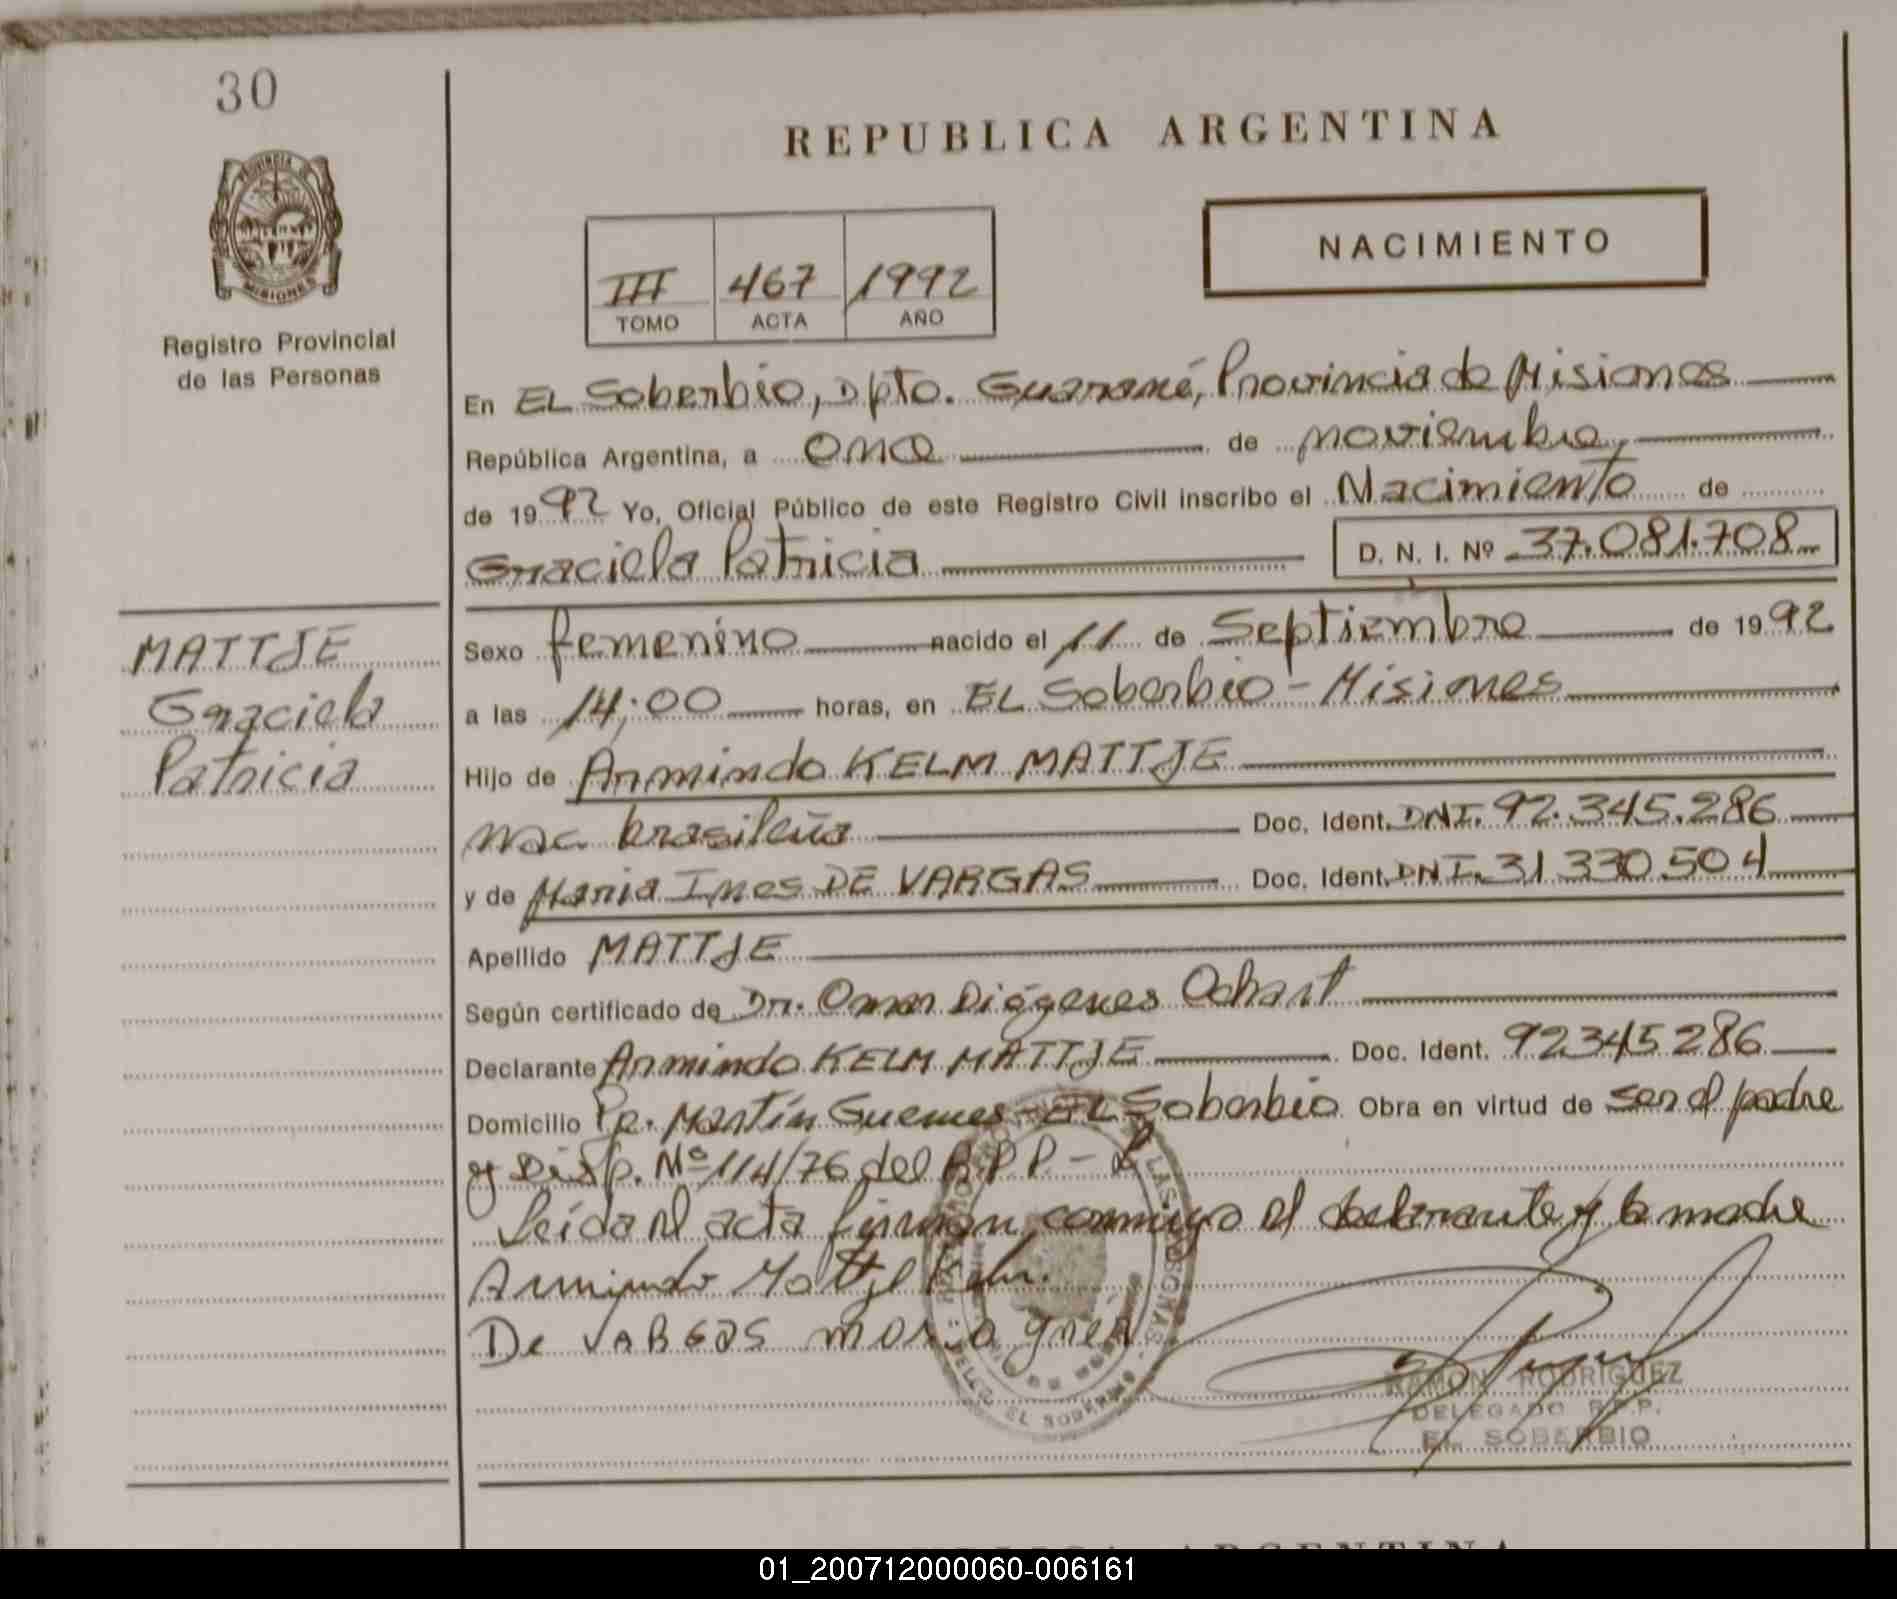 30
PROVINCIA DE
MISIONES
Registro Provincial
de las Personas
REPUBLICA ARGENTINA
NACIMIENTO
III 467 1992
TOMO ACTA AÑO
En EL Soberbio, Dpto. Guaraní, Provincia de Misiones
República Argentina, a once de noviembre,
de 1992 Yo, Oficial Público de este Registro Civil inscribo el Nacimiento de
Graciela Patricia D. N. I. Nº 37.081.708
MATTJE
Graciela
Patricia
Sexo femenino nacido el 11 de Septiembre de 1992
a las 14:00 horas, en EL Soberbio - Misiones
Hijo de Armindo KELM MATTJE
nac. brasileña Doc. Ident. DNI. 92.345.286
y de Maria Ines DE VARGAS Doc. Ident. DNI. 31 330.504
Apellido MATTJE
Según certificado de Dr. Omar Diógenes Ochart
Declarante Armindo KELM MATTJE Doc. Ident. 92345286
Domicilio Pje. Martín Guemes - EL Soberbio Obra en virtud de ser el padre
y Disp. Nº 114/76 del R.P.P. -
Leída el acta firman conmigo el declarante y la madre
Armindo Mattje Kelm.
De VARGAS maria ynes
LAS PERSONAS
EL SOBERBIO
RAMON RODRIGUEZ
DELEGADO R.P.P.
EL SOBERBIO
ARGENTINA
01_200712000060-006161